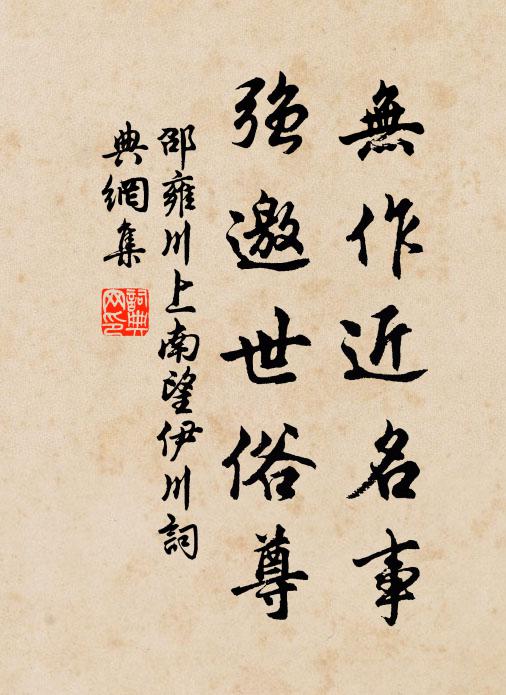 無作近名事
強邀世俗尊
邵雍川上南望伊川詞
典網集
詞典網印